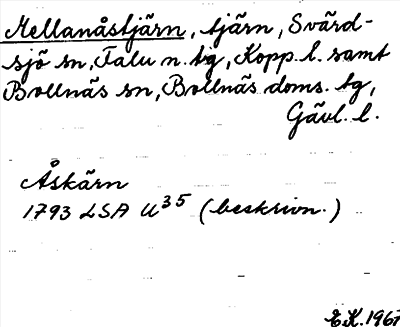 Mellanåstjärn, tjärn, Svärd-
sjö sn, Falu n. tg, Kopp. l. samt
Bollnäs sn, Bollnäs doms. tg,
Gävl. l.
Åskärn
1793 LSA U35 (beskrivn.)
E.K. 1967